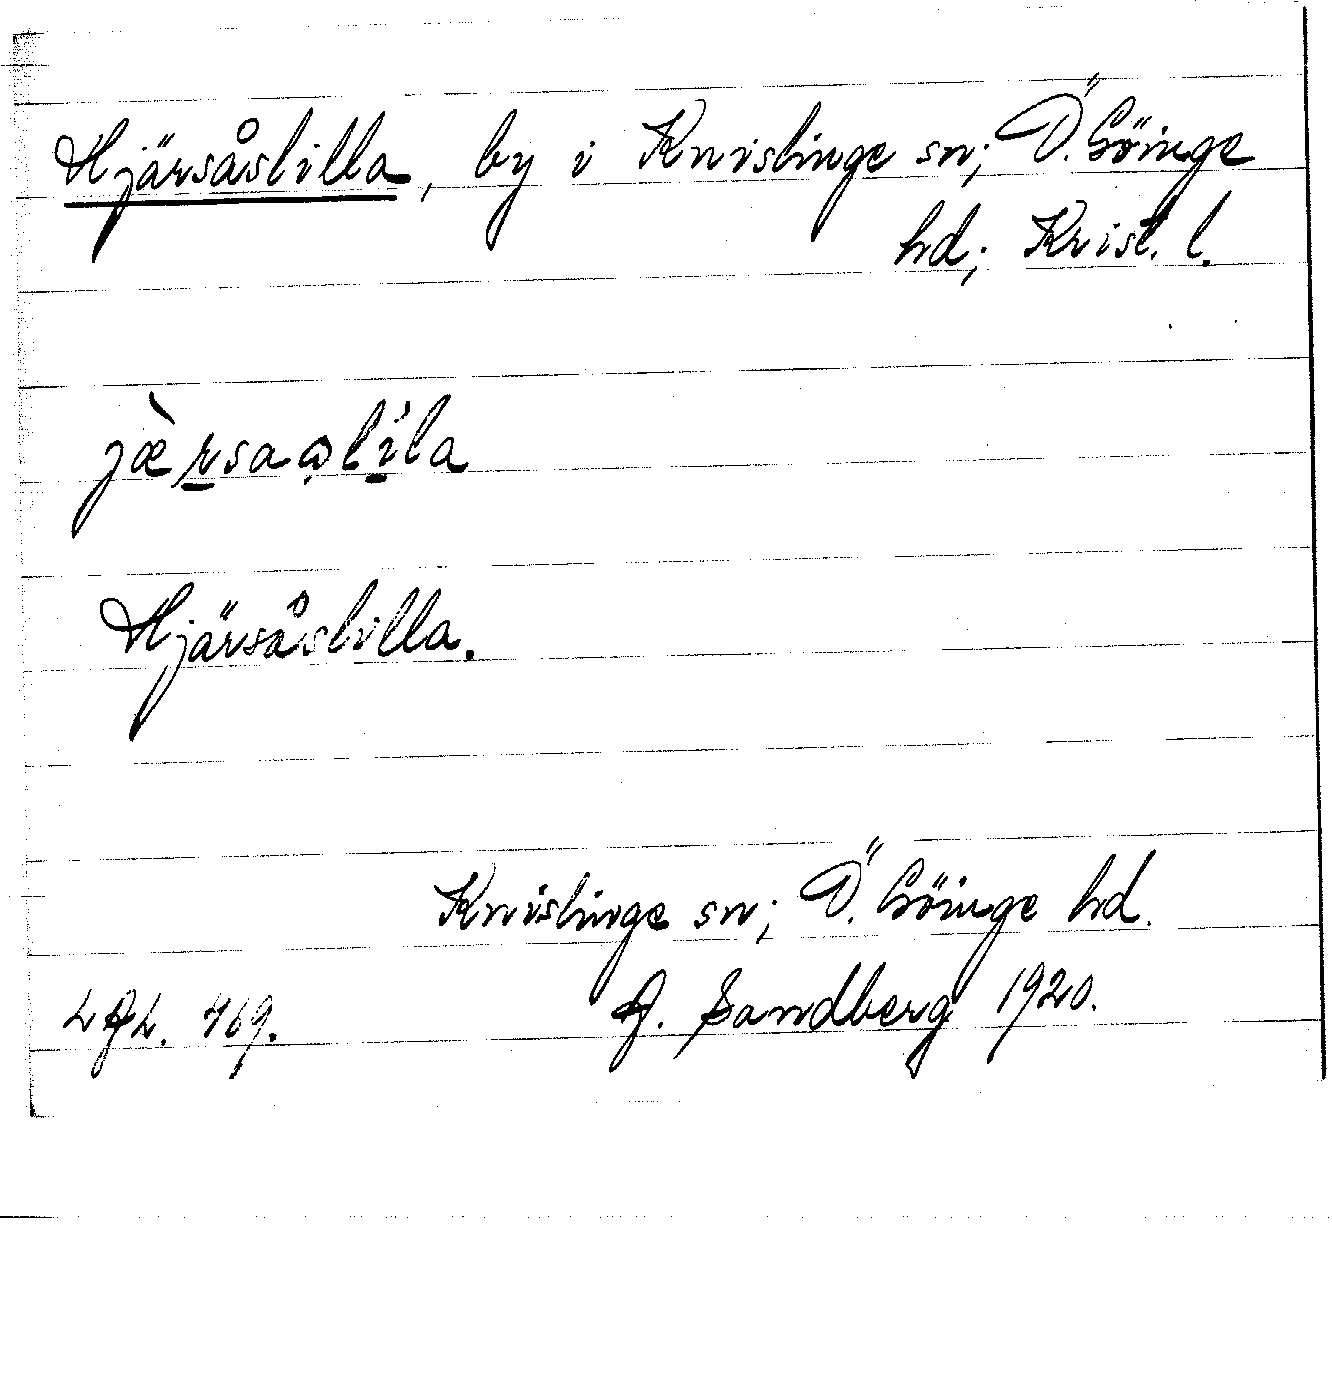 Hjärsåslilla, by i Knislinge sn; Ö. Göinge
hd; Krist. l.
Hjärsåslilla.
Knislinge sn; Ö. Göinge hd.
LAL. 469. A. Sandberg 1920.